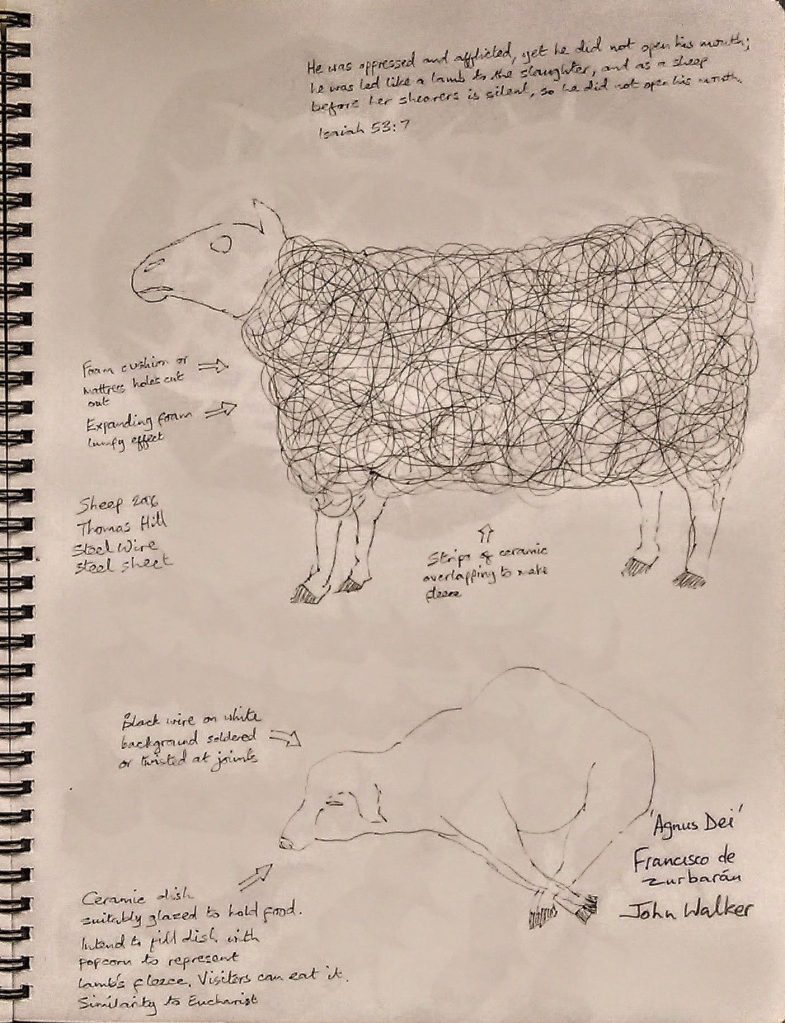 He was oppressed and afflicted, yet he did not open his mouth;
he was led like a lamb to the slaughter, and as a sheep
before her shearers is silent, so he did not open his mouth.
Isaiah 53:7
Foam cushion or
mattress holes cut
out
Expanding foam
lumpy effect
Sheep 2006
Thomas Hill
Steel Wire
steel sheet
Strips of ceramic
overlapping to make
fleece
Black wire on white
background soldered
or twisted at joints
'Agnus Dei'
Francisco de
zurbarán
John Walker
Ceramic dish
suitably glazed to hold food.
Intend to fill dish with
popcorn to represent
lamb's fleece. Visiters can eat it.
Similarity to Eucharist